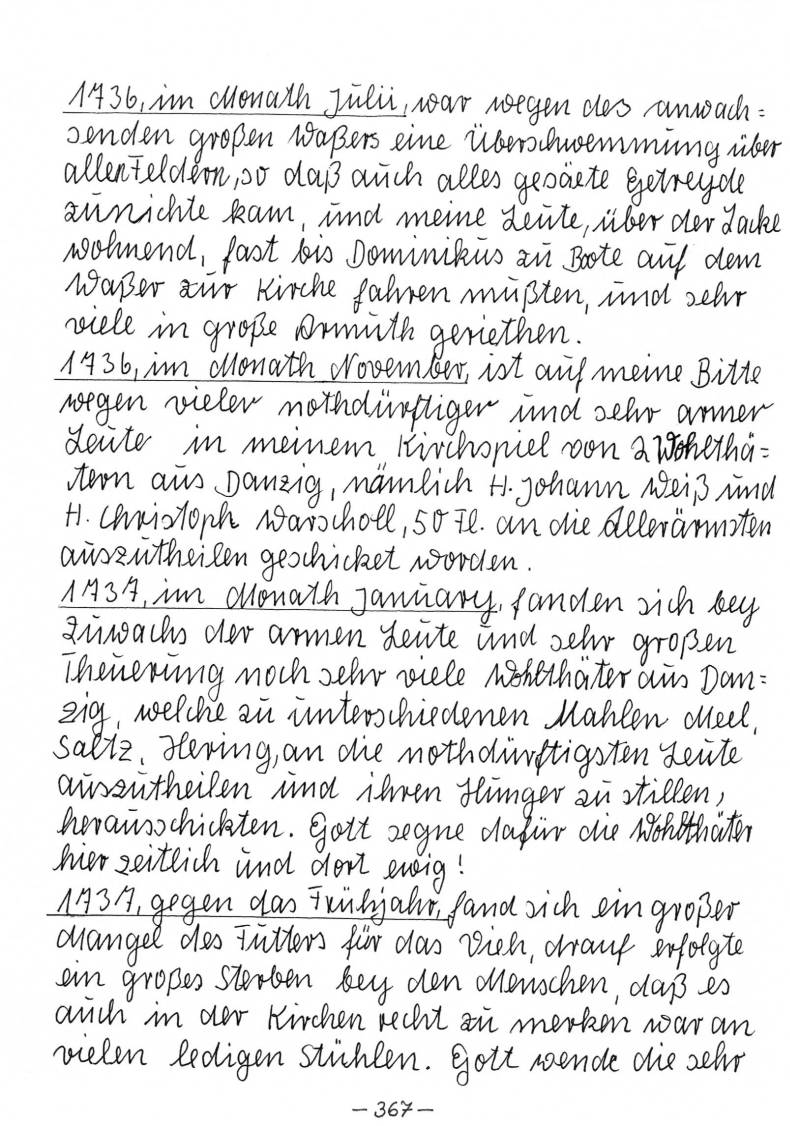 1736, im Monath Julii, war wegen des anwach=
senden großen Waßers eine Überschwemmung über
allen Feldern, so daß auch alles gesäete Getreyde
zunichte kam, und meine Leute, über der Lacke
wohnend, fast bis Dominikus zu Boote auf dem
Waßer zur Kirche fahren mußten, und sehr
viele in große Armuth geriethen.
1736, im Monath November, ist auf meine Bitte
wegen vieler nothdürftiger und sehr armer
Leute in meinem Kirchspiel von 2 Wohlthä=
tern aus Danzig, nämlich H. Johann Weiß und
H. Christoph Warscholl, 50 Fl. an die Allerärmsten
auszutheilen geschicket worden.
1737, im Monath January, fanden sich bey
Zuwachs der armen Leute und sehr großen
Theuerung noch sehr viele Wohlthäter aus Dan=
zig, welche zu unterschiedenen Mahlen Meel,
Saltz, Hering, an die nothdürftigsten Leute
auszutheilen und ihren Hunger zu stillen,
herausschickten. Gott segne dafür die Wohlthäter
hier zeitlich und dort ewig!
1737, gegen das Frühjahr, fand sich ein großer
Mangel des Futters für das Vieh, drauf erfolgte
ein großes Sterben bey den Menschen, daß es
auch in der Kirchen recht zu merken war an
vielen ledigen Stühlen. Gott wende die sehr
– 367 –